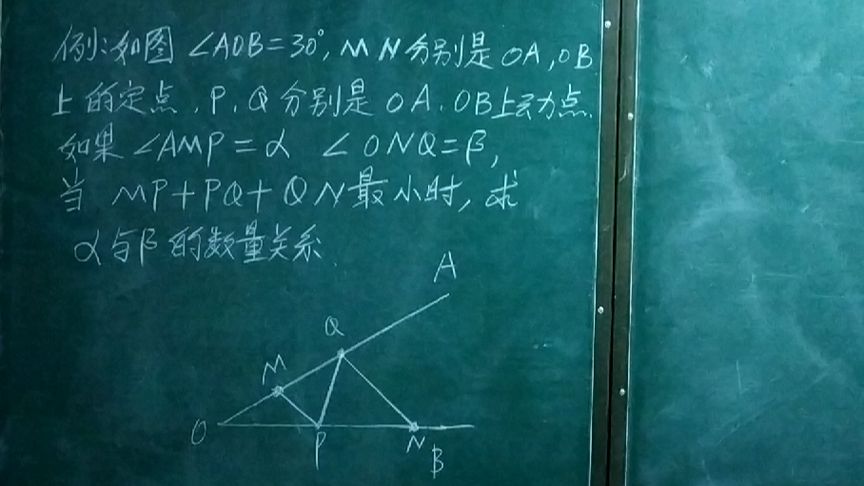 例:如图 ∠AOB=30°, M N 分别是 OA, OB
上的定点, P, Q 分别是 OA, OB上动点.
如果 ∠AMP=α ∠ONQ=β,
当 MP+PQ+QN最小时, 求
α与β的数量关系.
A
Q
M
O
P
N
B